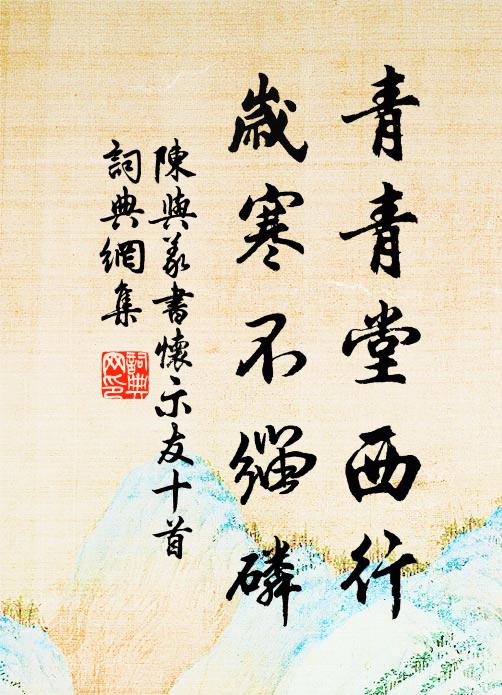 青青堂西行
歲寒不緇磷
陳與義書懷示友十首
詞典網集
詞典
网印